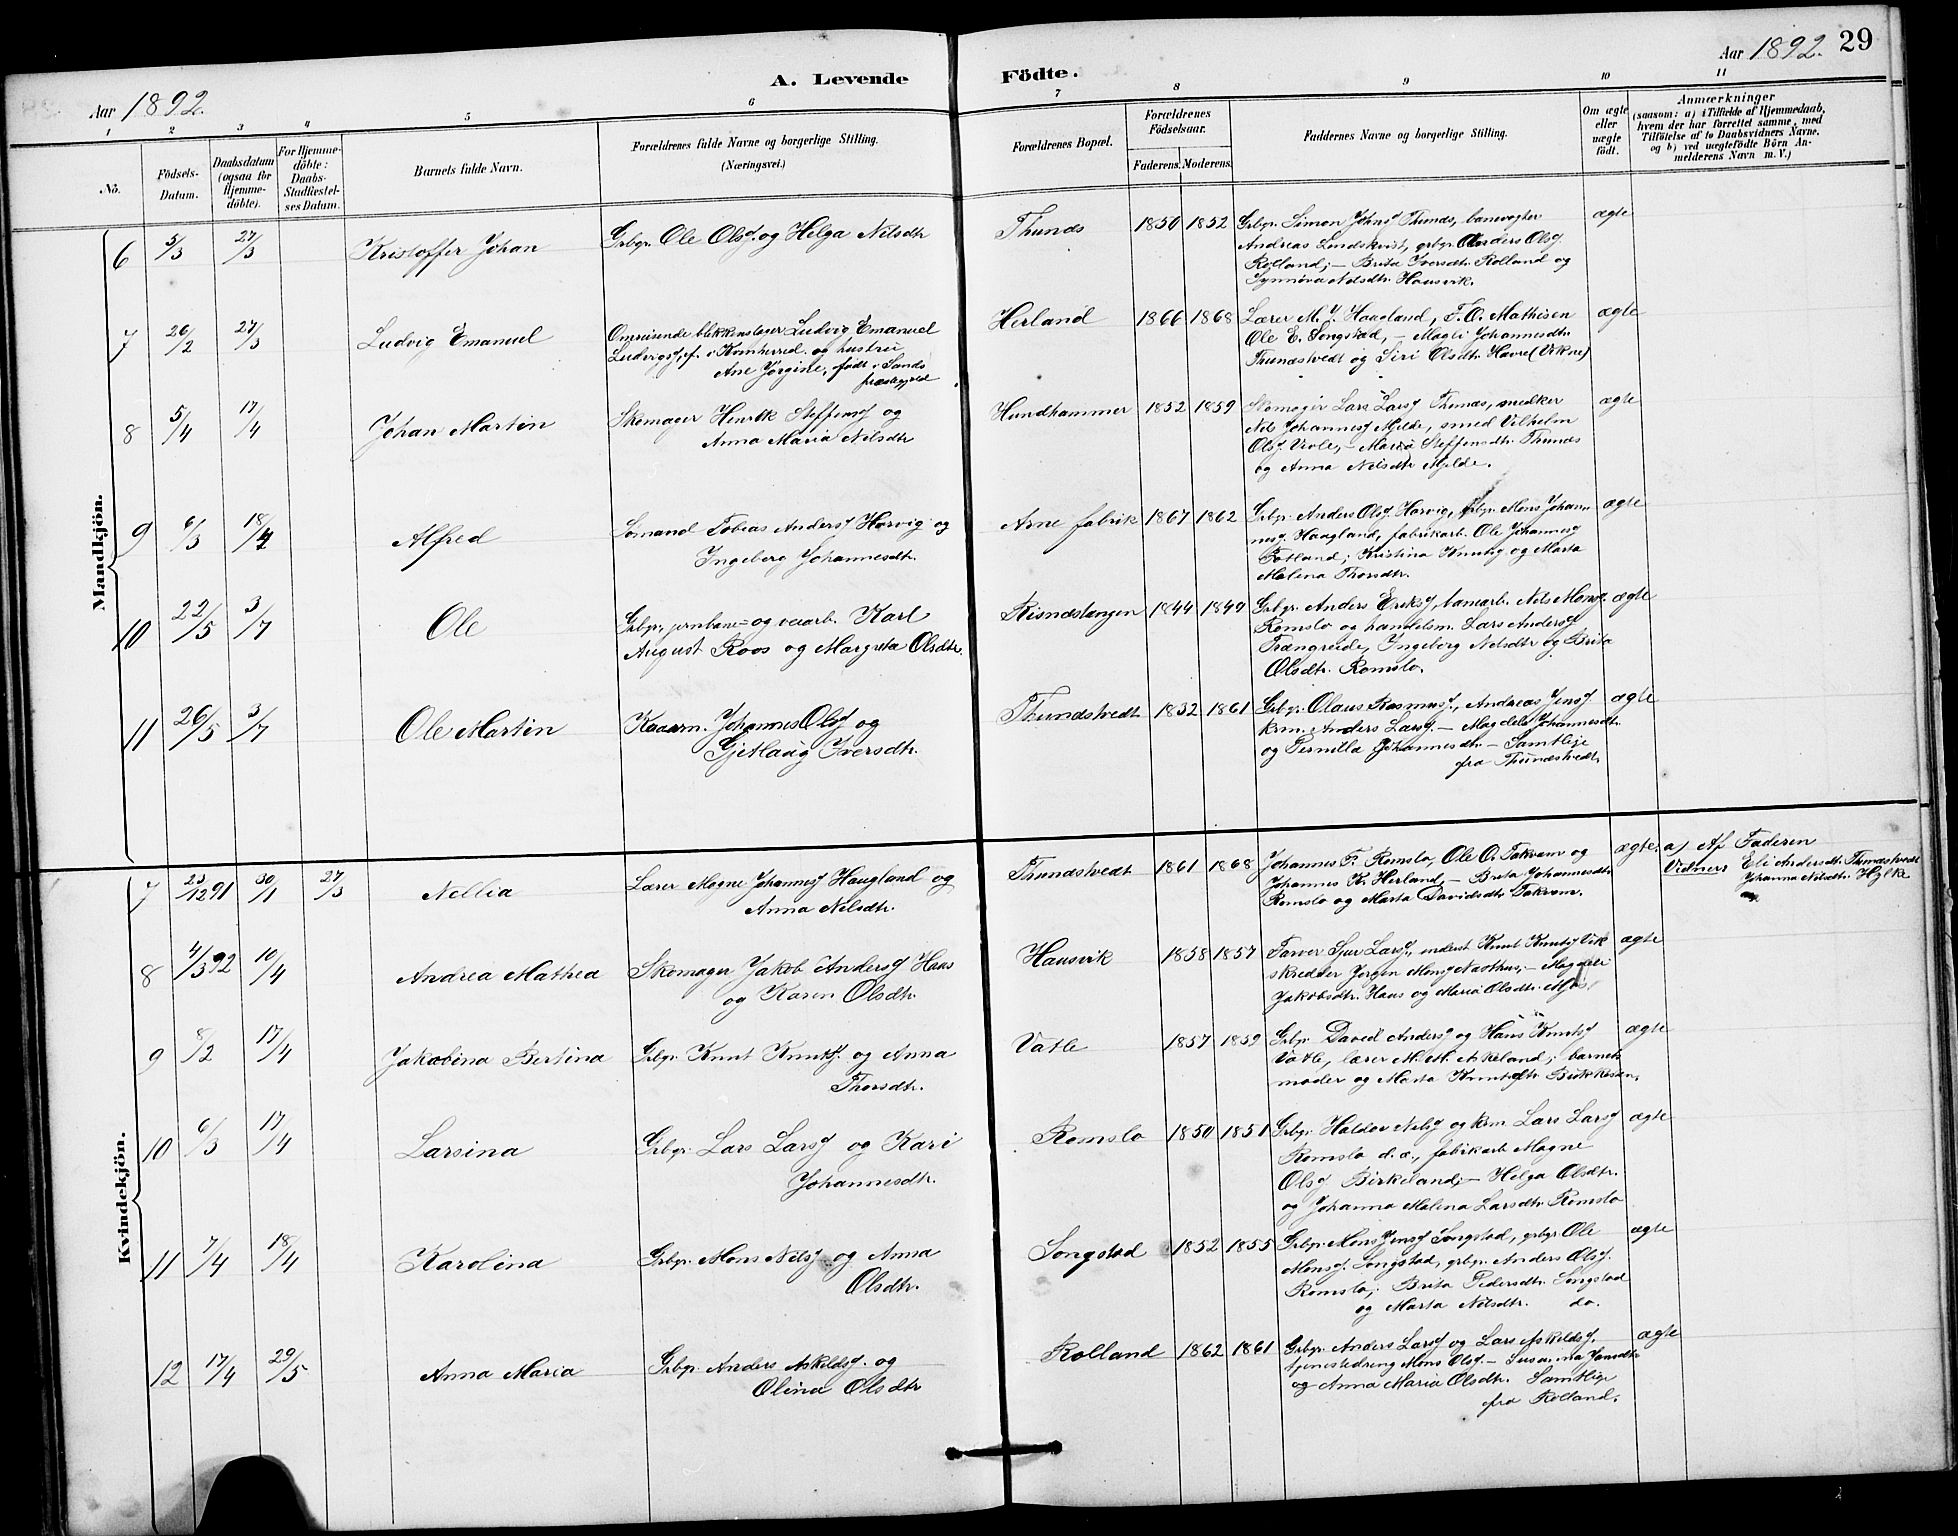 Aar 1892.
A. Levende Födte.
Aar 1892. 29
1 2 3 4 5 6 7 8 9 10 11
Nö.
Födsels-
Datum.
Daabsdatum
(ogsaa for
Hjemme-
döbte).
For Hjemme-
döbte:
Daabs-
Stadfæstel-
ses Datum.
Barnets fulde Navn.
Forældrenes fulde Navne og borgerlige Stilling.
(Næringsvei.)
Forældrenes Bopæl.
Forældrenes
Födselsaar.
Faderens. Moderens.
Faddernes Navne og borgerlige Stilling.
Om ægte
eller
uægte
födt.
Anmærkninger
(saasom: a) i Tilfælde af Hjemmedaab,
hvem der har forrettet samme, med
Tilföielse af to Daabsvidners Navne,
og b) ved uægtefödte Börn An-
melderens Navn m. V.)
Mandkjön.
6 5/3 27/3 Kristoffer Johan
Grbgr. Ole Olsf. og Helga Nilsdtr
Thunæs 1850 1852
Grbgr. Simon Johnsf Thunæs, banevogter
Andreas Lundskvist, grbgr. Anders Olsf.
Rolland; – Brita Iversdtr. Rolland og
Synnöva Nilsdtr. Hausvik.
ægte
7 26/2 27/3 Ludvig Emanuel
Omreisende blikkenslager Ludvig Emanuel
Ludvigsf, f. i Kvinherred og hustru
Ane Jörgine, födt i Sands
præstegjeld
Herland 1866 1868
Lærer M. J. Haugland, F. O. Mathisen
Ole E. Songstad, – Magli Johannesdtr.
Thunæstvedt og Siri Olsdtr. Havre (Vikne)
ægte
8 5/4 17/4 Johan Martin
Skomager Henrik Steffensf og
Anna Maria Nilsdtr
Hundhammer 1852 1859
Skomager Lars Larsf Thunæs, snedker
Nils Johannesf Mjelde, smed Vilhelm
Olsf. Viole, – Maria Steffensdtr. Thunæs
og Anna Nilsdtr Mjelde.
ægte
9 6/3 18/4 Alfred
Sömand Tobias Andersf Horvig og
Ingeborg Johannesdtr.
Arne fabrik 1867 1862
Grbgr. Anders Olsf. Horvig, grbgr. Mons Johan-
nesf. Haugland, fabrikarb. Ole Johannesf
Fotland; Kristina Knutsf og Marta
Malena Thorsdtr.
ægte
10 22/5 3/7 Ole
Grbgr., jernbane- og veiarb. Karl
August Roos og Margreta Olsdtr.
Risnæstangen 1844 1849
Grbgr. Anders Eriksf, banearb. Nils Monsf.
Romslo og handelsm. Lars Andersf
Trængreide, Ingeborg Nilsdtr og Brita
Olsdtr. Romslo.
ægte
11 26/5 3/7 Ole Martin
Kaarm. Johannes Olsf og
Gjetlaug Iversdtr.
Thunæstvedt 1832 1861
Grbgr. Olaus Rasmusf., Andreas Jensf
krm. Anders Larsf. – Magdela Johannesdtr.
og Pernilla Johannesdtr. – Samtlige
fra Thunæstvedt.
ægte
Kvindekjön.
7 23/12 91 30/1 27/3 Nellia
Lærer Magne Johannesf Haugland og
Anna Nilsdtr.
Thunæstvedt 1861 1868
Johannes F. Romslo, Ole O. Takvam og
Johannes K. Herland – Brita Johannesdtr.
Romslo og Marta Davidsdtr. Takvam.
ægte.
a) Af Faderen
Vidner: Eli Andersdtr. Thunæstvedt
Johanna Nilsdtr. Hylke
8 4/3 92 10/4 Andrea Mathea
Skomager Jakob Andersf Haus
og Karen Olsdtr.
Hausvik 1858 1857
Farver Sjur Larsf., inderst Knut Knutsf Vik
skrædder Jörgen Monsf Nasthus, – Magdeli
Jakobsdtr. Haus og Maria Olsdtr. Mjös
ægte
9 8/2 17/4 Jakobina Bertina
Grbgr. Knut Knutsf. og Anna
Thorsdtr.
Vatle 1857 1859
Grbgr. David Andersf og Hans Knutsf
Vatle, lærer M. M. Askeland; barnets
moder og Marta Knutsdtr. Bukkesten.
ægte
10 6/3 17/4 Larsina
Grbgr. Lars Larsf og Kari
Johannesdtr.
Romslo 1850 1851
Grbgr. Haldor Nilsf og krm. Lars Larsf
Romslo d. æ., fabrikarb. Magne
Olsf Birkeland, – Helga Olsdtr.
og Johanna Malena Larsdtr. Romslo
ægte
11 7/4 18/4 Karolina
Grbgr. Mons Nilsf og Anna
Olsdtr.
Songstad 1852 1855
Grbgr. Mons Jensf Songstad, grbgr. Ole
Monsf. Songstad, grbgr. Anders Olsf.
Romslo; Brita Pedersdtr. Songstad
og Marta Nilsdtr. do.
ægte
12 17/4 29/5 Anna Maria
Grbgr. Anders Askeldsf. og
Olina Olsdtr
Rolland 1862 1861
Grbgr. Anders Larsf og Lars Askeldsf.
tjenestedreng Mons Olsf. – Susanna Jansdtr.
og Anna Maria Olsdtr. Samtlige
fra Rolland.
ægte